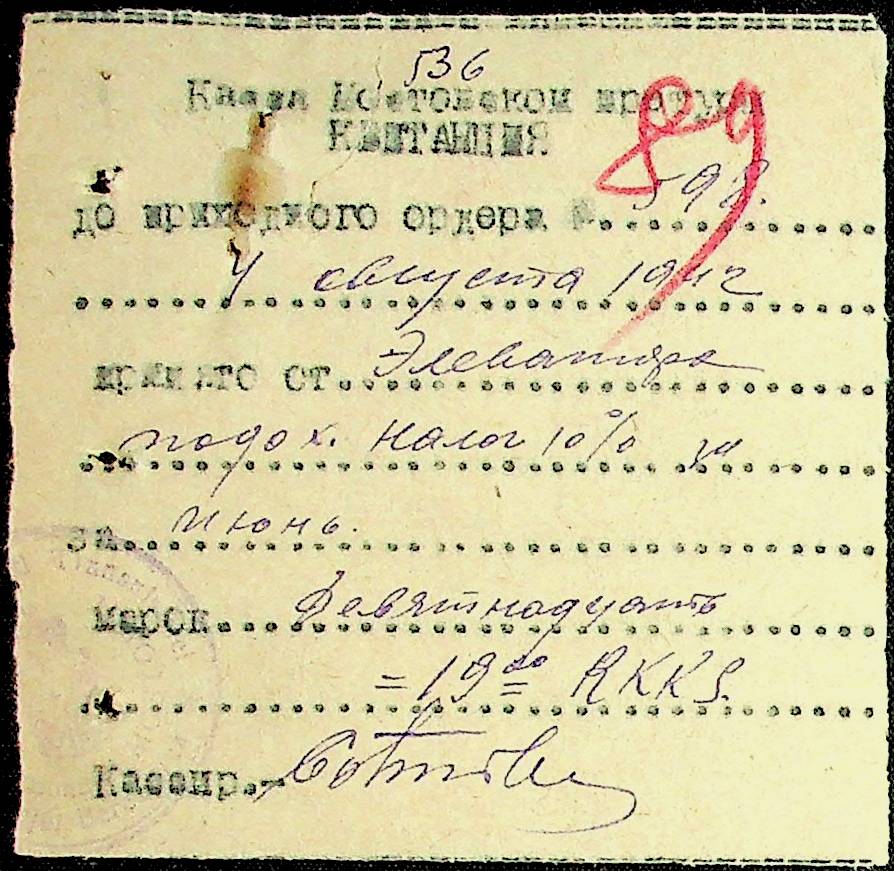 536
Касса Мостовской управы
КВИТАНЦИЯ
89
до приходного ордера №. 598.
4 августа 1942
принято от. Элеватора
подох. налог 10%
за Июнь.
марок Девятнадцать
= 19 00 RKKS.
Кассир.-